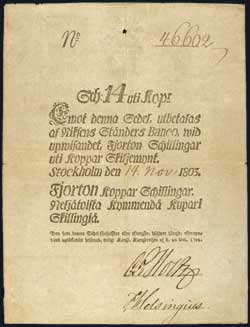 No 46602
Sch: 14 uti Kopr
Emot denna Sedel, utbetalas
af Riksens Ständers Banco, wid
upwisandet, Fjorton Schillingar
uti Koppar Skiljemynt.
Stockholm den 14. Nov. 1803.
Fjorton Koppar Schillingar.
Neljätoista Kymmendä Kupari
Skillingiä.
Den som denna Sedel
Helsingius.